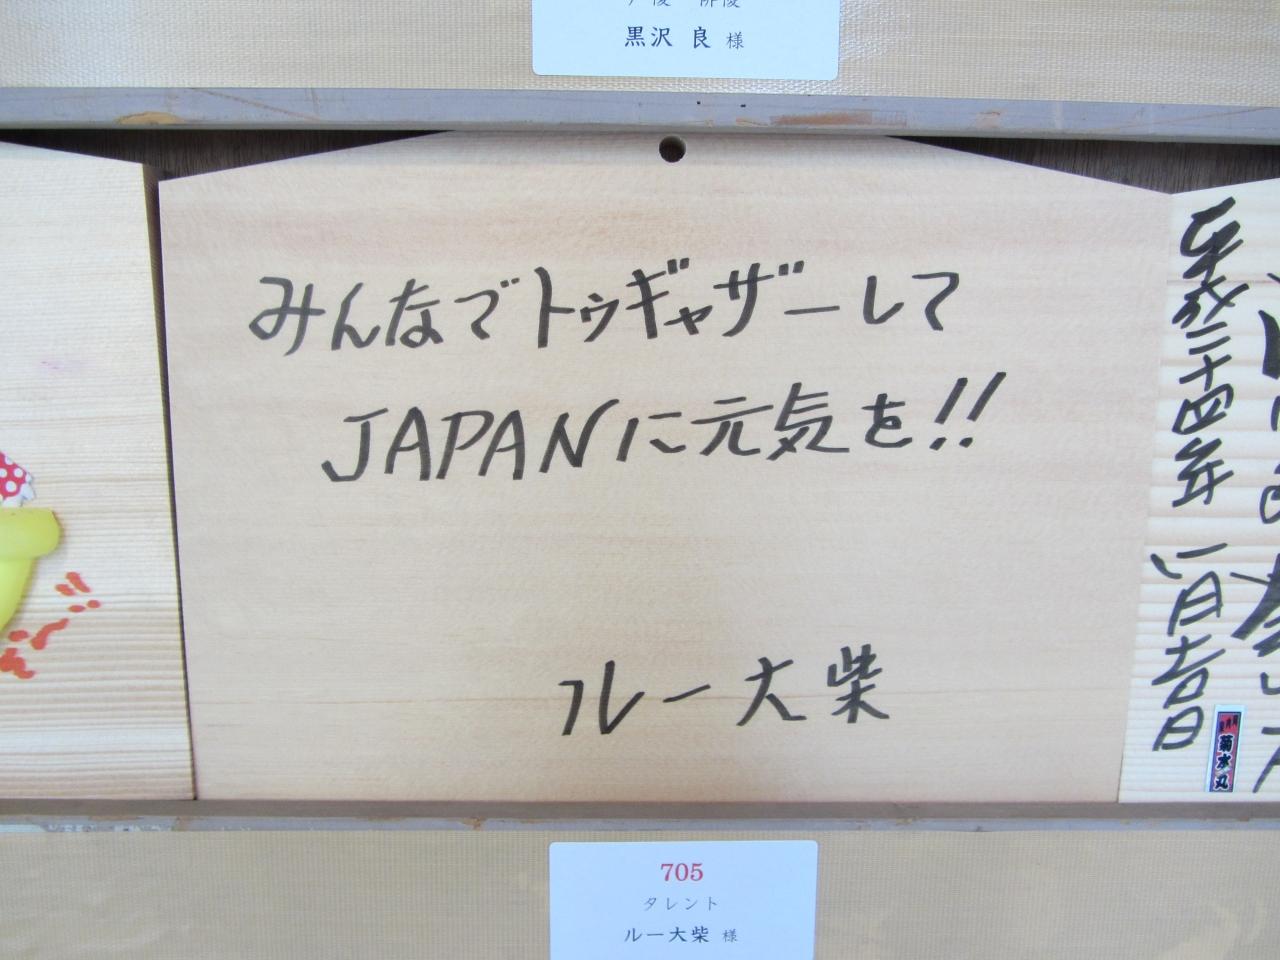 黒沢 良 様
みんなでトゥギャザーして
JAPANに元気を!!
ルー大柴
平成二十四年 八月吉日
菊水丸
705
タレント
ルー大柴 様